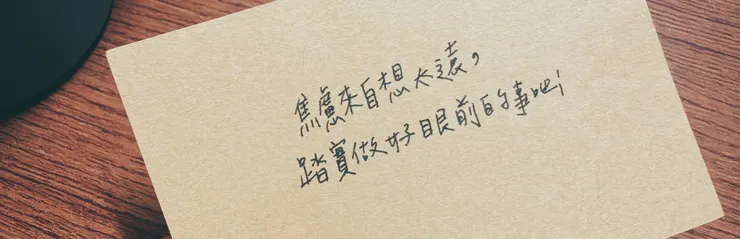 焦慮來自想太遠，
踏實做好眼前的事吧!